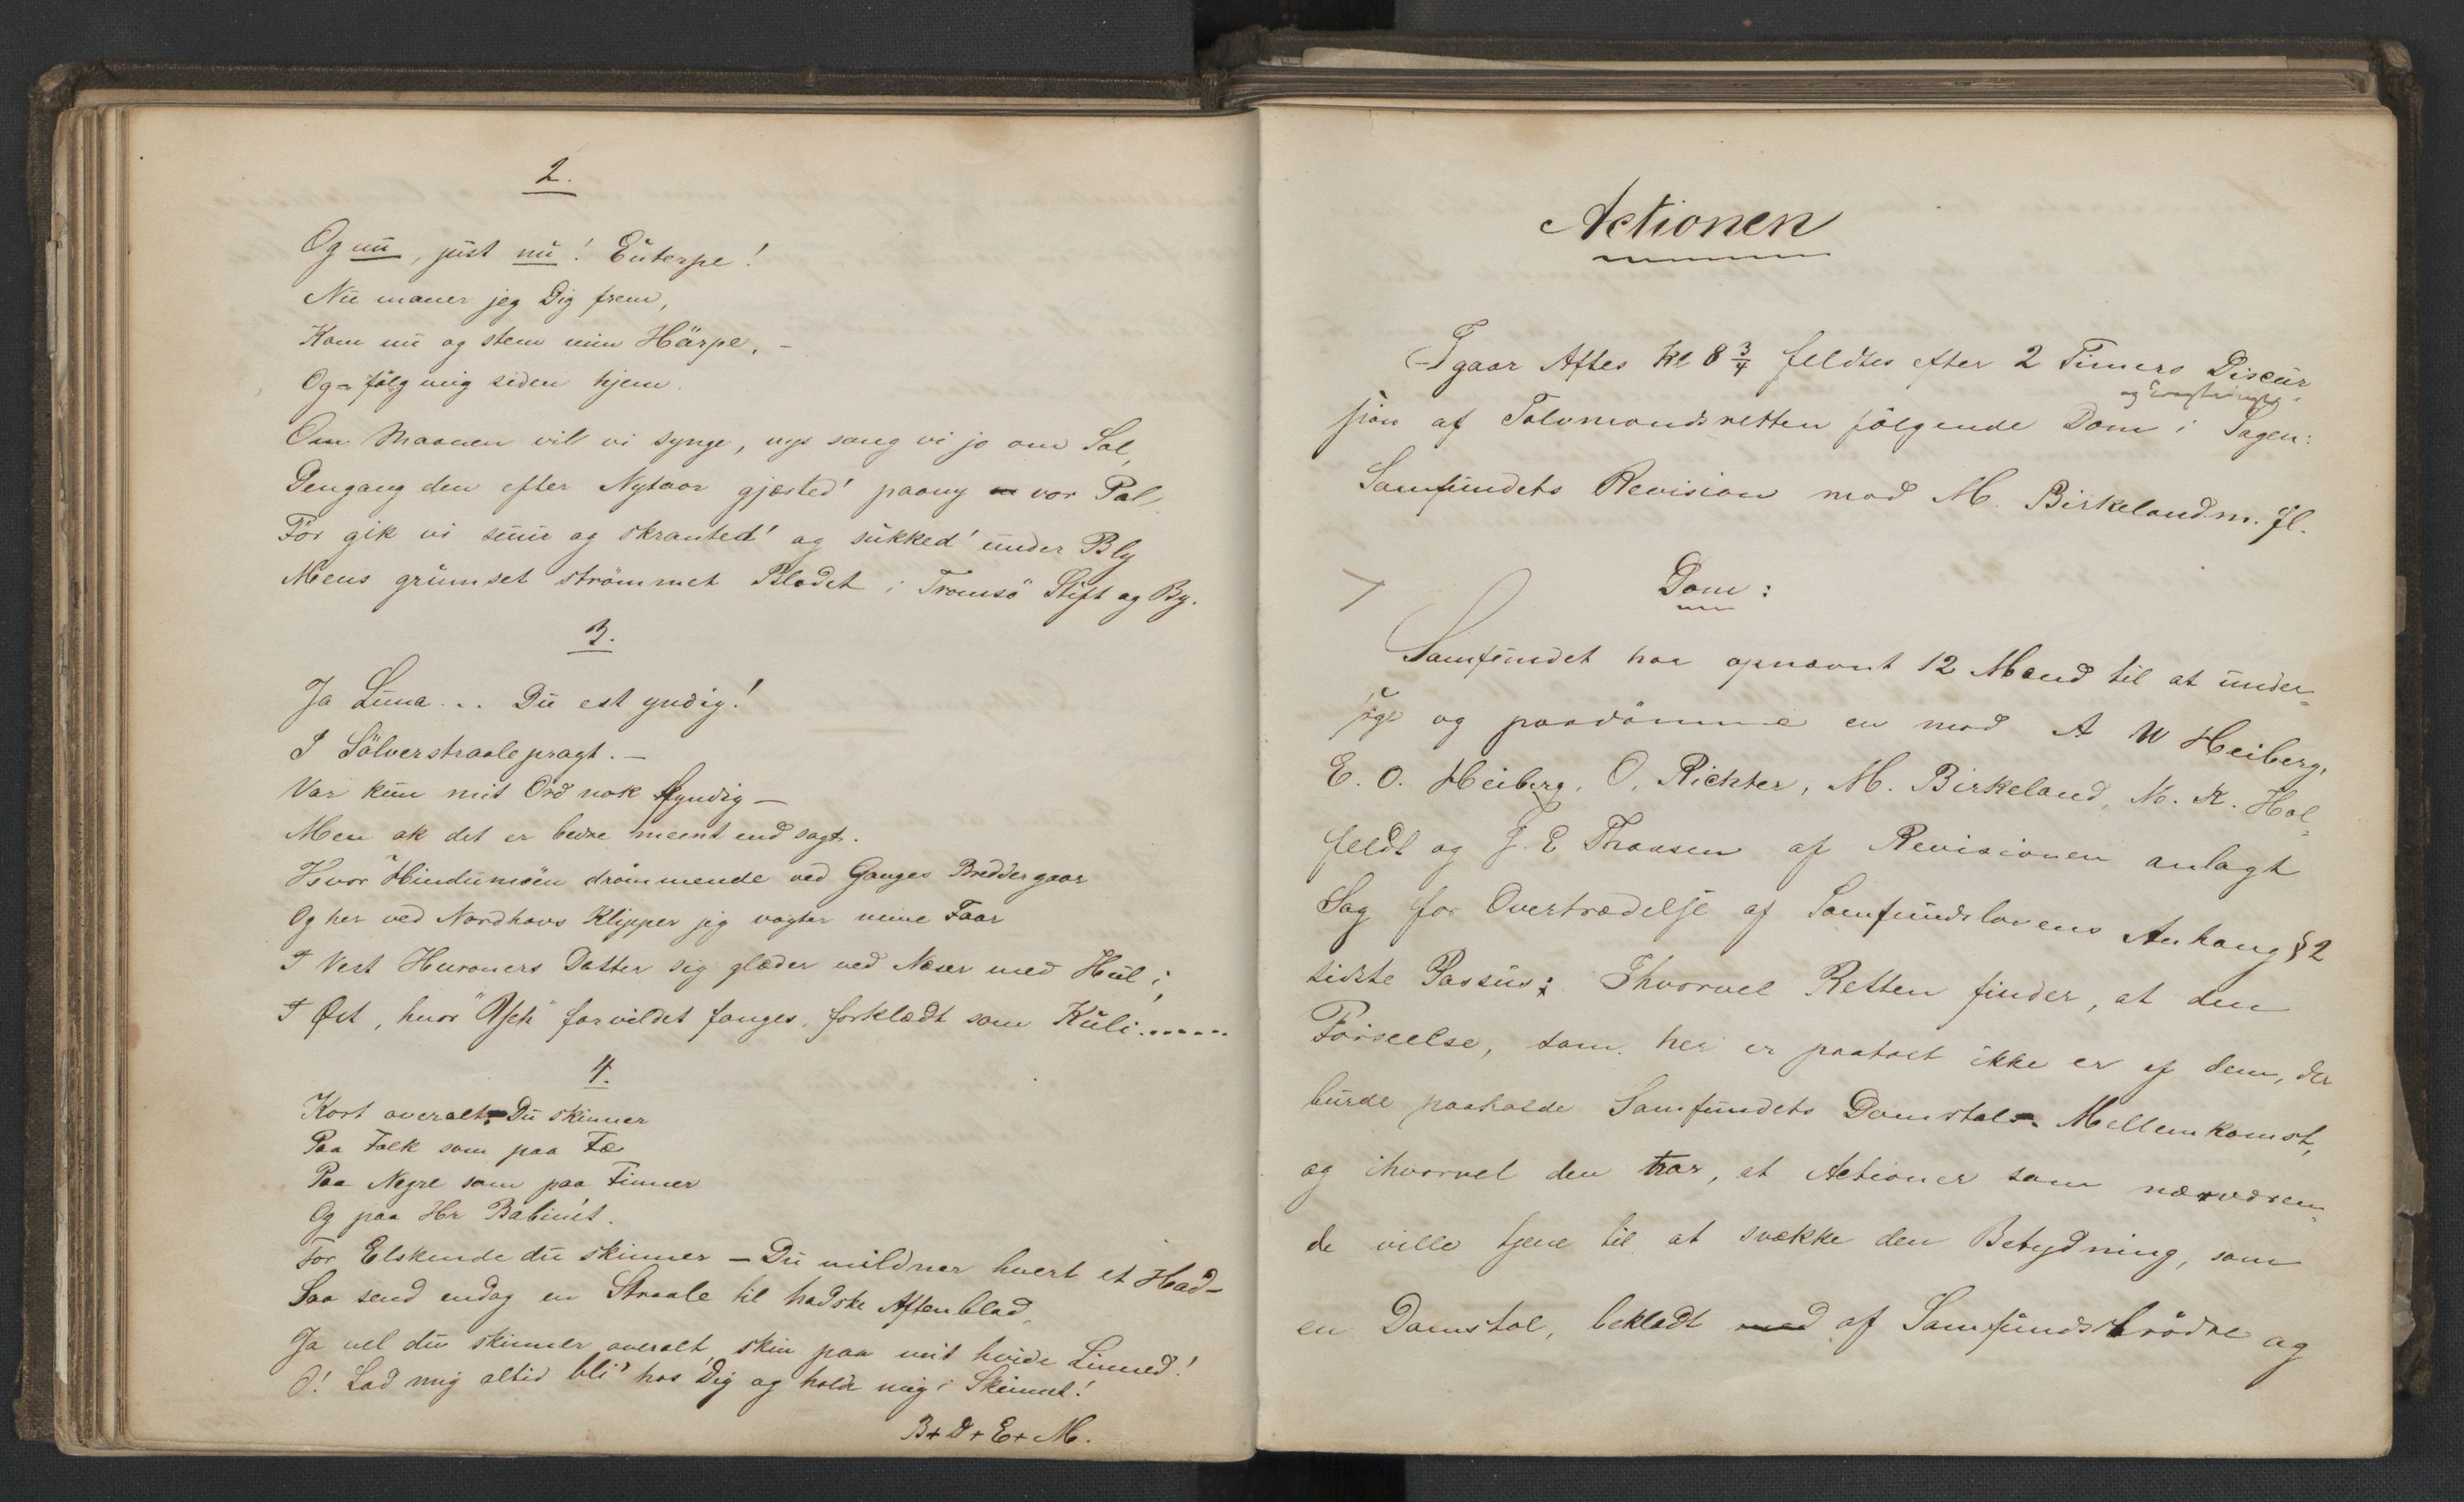 2.
Og nu, just nu! Euterpe!
Nu maner jeg Dig frem,
Kom nu og stem min Härpe, –
Og – fölg mig siden hjem.
Om Maanen vil vi synge, nys sang vi jo om Sol,
Dengang den efter Nytaar gjæsted' paany vor Pol,
Før gik vi suur og skranted' og sukked' under Bly
Mens grumset strömmet Blodet i Tromsö Stift og By.
3.
Ja Luna... Du est yndig!
I Sölverstraalepragt. –
Var kun mit Ord nok fyndig –
Men ak det er bedre meent end sagt.
Hvor Hindumöen drömmende ved Ganges Bredder gaar
Og her ved Nordhavs Klipper jeg vogter mine Faar
I Vest Huroners Datter sig glæder ved Næser med Hul i,
I Øst, hvor "Asch" forvildet fanges, forklædt som Kuli......
4.
Kort overalt Du skinner
Paa Folk som paa Fæ
Paa Negre som paa Finner
Og paa Hr Babinet.
For Elskende du skinner – Du mildner hvert et Had –
Saa send endog en Straale til hadske Aftenblad,
Ja vel du skinner overalt, skin paa mit hvide Linned!
O! Lad mig altid bli' hos Dig og hold mig i Skinnet!
B+D+E+M.
Actionen
Igaar Aftes Kl 8 3/4 feldtes efter 2 Timers Discus
sion af Tolvmandsretten fölgende Dom i Sagen:
Samfundets Revision mod M. Birkeland m. fl.
Dom:
Samfundet har opnævnt 12 Mænd til at under-
söge og paadömme en mod A W Heiberg,
E. O. Heiberg, O. Richter, M. Birkeland, N. R. Hol-
feldt og J. E Thaasen af Revisionen anlagt
Sag for Overtrædelse af Samfundslovens Anhang § 2
sidste Passus; Ihvorvel Retten finder, at den
Forseelse, som her er paatalt ikke er af dem, der
burde paakalde Samfundets Domstols Mellemkomst,
og ihvorvel den tror, at Actioner som nærværen-
de ville tjene til at svække den Betydning, som
en Domstol, beklædt med af Samfundsbrödre og